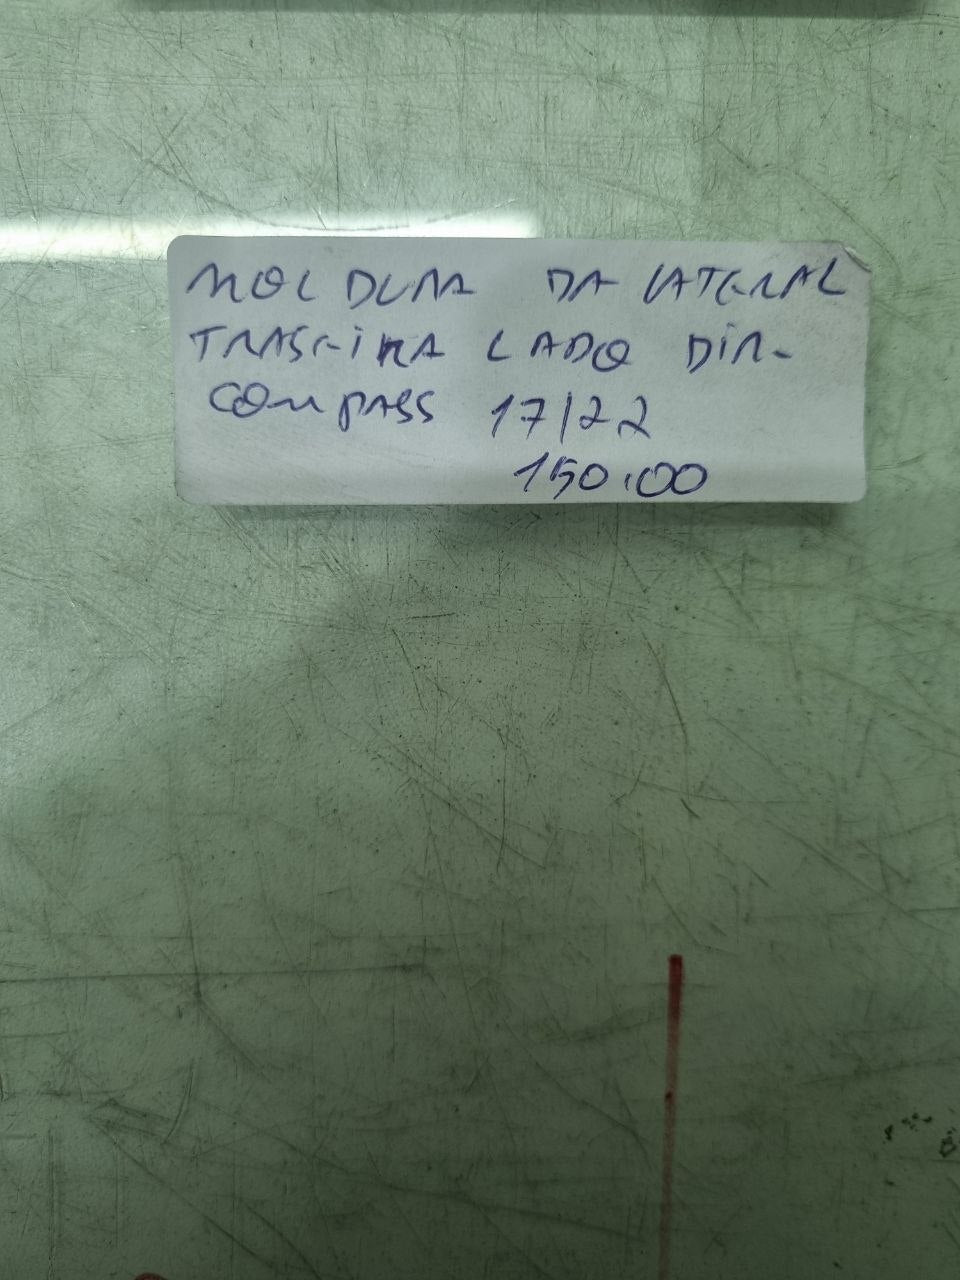 MOLDURA DA LATERAL
TRASEIRA LADO DIR-
COMPASS 17/22
150,00